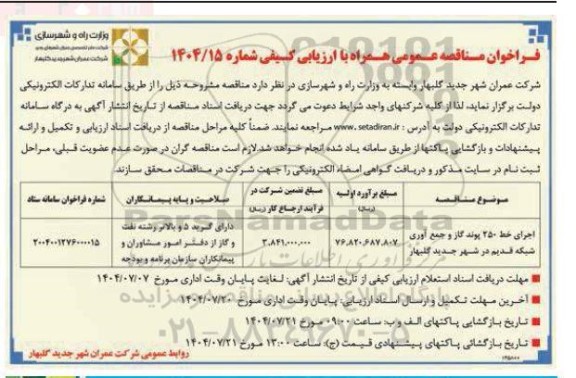 وزارت راه و شهرسازی
شرکت عمران شهر جدید گلبهار
فراخوان مناقصه عمومی همراه با ارزیابی کیفی شماره ۱۴۰۴/۱۵
شرکت عمران شهر جدید گلبهار وابسته به وزارت راه و شهرسازی در نظر دارد مناقصه مشروحه ذیل را از طریق سامانه تدارکات الکترونیکی
دولت برگزار نماید، لذا از کلیه شرکتهای واجد شرایط دعوت می گردد جهت دریافت اسناد مناقصه از تاریخ انتشار آگهی به درگاه سامانه
تدارکات الکترونیکی دولت به آدرس : www.setadiran.ir مراجعه نمایند. ضمناً کلیه مراحل مناقصه از دریافت اسناد ارزیابی و تکمیل و ارائه
پیشنهادات و بازگشایی پاکتها از طریق سامانه یاد شده انجام خواهد شد. لازم است مناقصه گران در صورت عدم عضویت قبلی، مراحل
ثبت نام در سایت مذکور و دریافت گواهی امضاء الکترونیکی را جهت شرکت در مناقصات محقق سازند.
موضوع مناقصه
مبلغ برآورد اولیه (ریال)
مبلغ تضمین شرکت در فرآیند ارجاع کار (ریال)
صلاحیت و پایه پیمانکاران
شماره فراخوان سامانه ستاد
اجرای خط ۲۵۰ پوند گاز و جمع آوری شبکه قدیم در شهر جدید گلبهار
۷۶،۸۲۰،۶۸۷،۸۰۷
۳،۸۴۱،۰۰۰،۰۰۰
دارای گرید ۵ و بالاتر رشته نفت و گاز از دفتر امور مشاوران و پیمانکاران سازمان برنامه و بودجه
۲۰۰۴۰۰۱۲۷۶۰۰۰۰۱۵
مهلت دریافت اسناد استعلام ارزیابی کیفی از تاریخ انتشار آگهی: لغایت پایان وقت اداری مورخ ۱۴۰۴/۰۷/۰۷
آخرین مهلت تکمیل و ارسال اسناد ارزیابی: پایان وقت اداری مورخ ۱۴۰۴/۰۷/۲۰
تاریخ بازگشایی پاکتهای الف و ب: ساعت ۰۹:۰۰ مورخ ۱۴۰۴/۰۷/۲۱
تاریخ بازگشائی پاکتهای پیشنهادی قیمت (ج): ساعت ۱۳:۰۰ مورخ ۱۴۰۴/۰۷/۲۱
روابط عمومی شرکت عمران شهر جدید گلبهار
ParsNamadData
۰۲۱-۸۸۳۴۹۶۷۰-۵